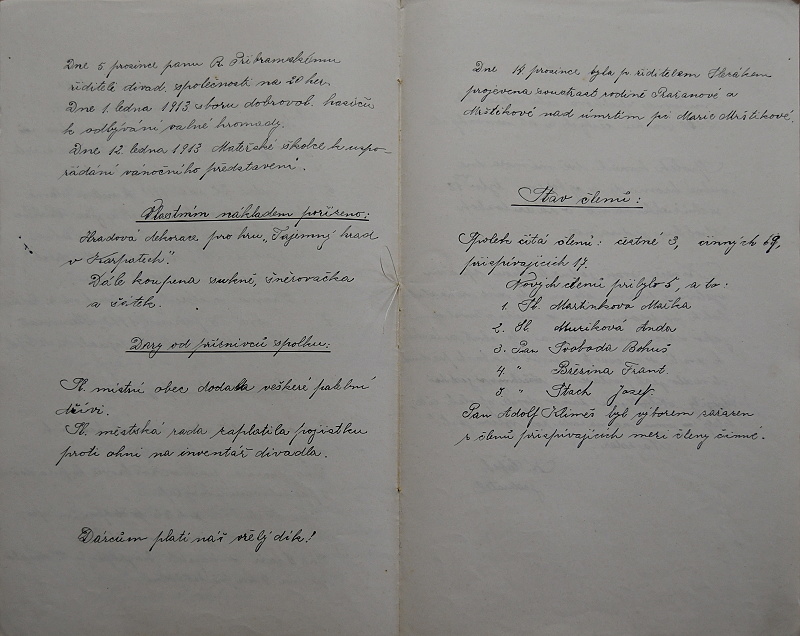 Dne 5 prosince panu R. Příbramskému
řiditeli divad. společnosti na 20 her.
Dne 1. ledna 1913 sboru dobrovol. hasičů
k odbývání valné hromady.
Dne 12. ledna 1913 Mateřské školce k uspo-
řádání vánočního představení.
Vlastním nákladem pořízeno:
Hradová dekorace pro hru „Tajemný hrad
v Karpatech."
Dále koupena sukně, šněrovačka
a šátek.
Dary od příznivců spolku:
Sl. místní obec dodala veškeré palební
dříví.
Sl. městská rada zaplatila pojistku
proti ohni na inventář divadla.
Dárcům platí náš vřelý dík!
Dne 14 prosince byla p. řiditelem
projevena soustrast rodině Pažanové a
Mrštíkové nad úmrtím pí Marie Mrštíkové.
Stav členů:
Spolek čítá členů: čestné 3, činných 69,
přispívajících 17.
Nových členů přibylo 5, a to:
1. Sl. Martínkova Mařka
2. Sl. Muziková Anda
3. Pan Svoboda Bohuš
4 " Březina Frant.
5 " Stach Josef.
Pan Adolf Klimeš byl výborem zařazen
z členů přispívajících mezi členy činné.